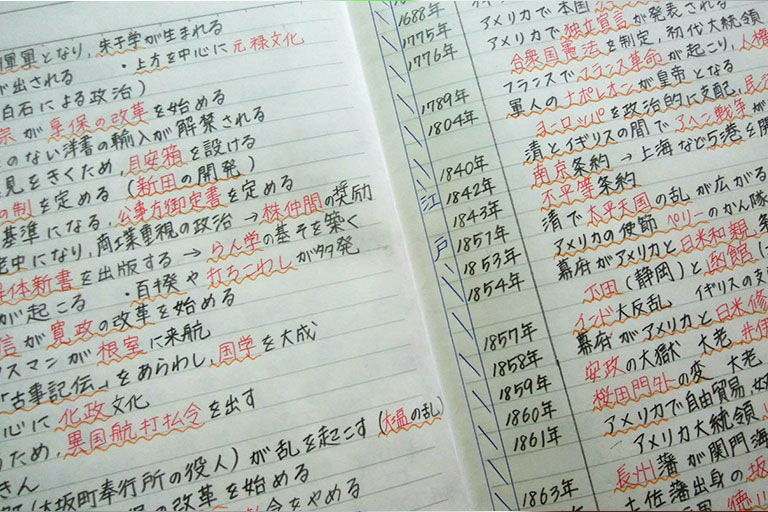 軍となり,朱子学が生まれる
が出される ・上方を中心に元禄文化
白石による政治)
が享保の改革を始める
のない洋書の輸入が解禁される
見をきくため,目安箱を設ける
の制を定める (新田の開発)
基準になる,公事方御定書を定める
老中になり,商工業重視の政治→株仲間の奨励
体新書を出版する→らん学の基そを築く
が起こる ・百揆や打ちこわしが多発
信が寛政の改革を始める
スマンが根室に来航
「古事記伝」をあらわし,国学を大成
心に化政文化
ため,異国船打払令を出す
(大塩の乱)
大坂町奉行所の役人)が乱を起こす
きん
の改革を始める
令をやめる
1688年
1775年
1776年
1789年
1804年
1840年
1842年
1843年
1851年
1853年
1854年
1857年
1858年
1859年
1860年
1861年
1863年
江
戸
アメリカで本国
アメリカで独立宣言が発表される
合衆国憲法を制定,初代大統領
フランスでフランス革命が起こり,人権
軍人のナポレオンが皇帝となる
ヨーロッパを政治的に支配,民
清とイギリスの間でアヘン戦争が
南京条約→上海など5港を開
不平等条約
清で太平天国の乱が広がる
アメリカの使節ペリーのかん隊
幕府がアメリカと日米和親条
下田(静岡)と函館(
インド大反乱 イギリスの支
幕府がアメリカと日米修
安政の大獄 大老井伊
桜田門外の変 大老
アメリカで自由貿易,奴
アメリカ大統領
長州藩が関門海
土佐藩出身の坂
徳川